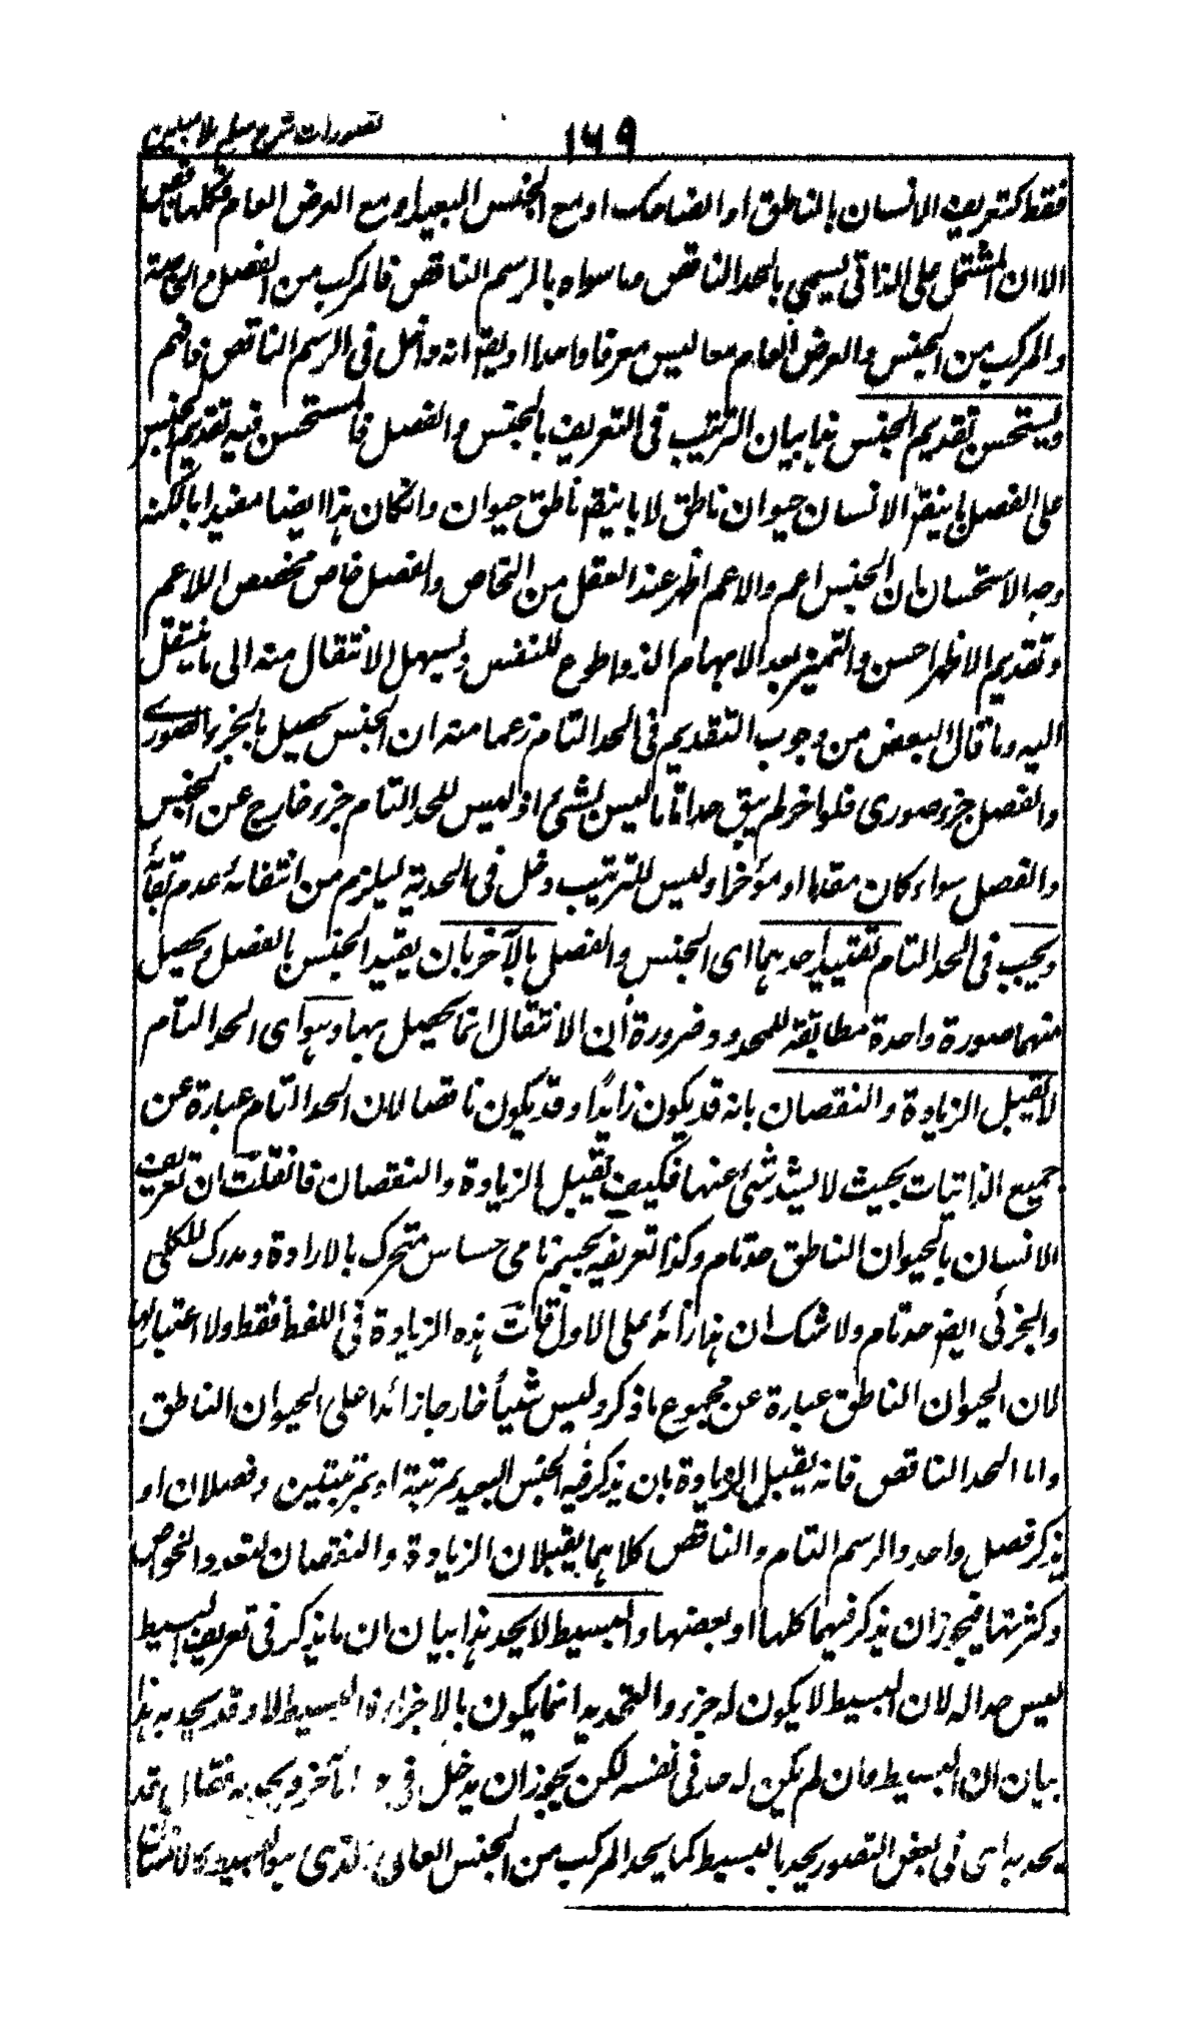 ١٦٩
تصورات شرح سلم ملا مبین
فقط كتعريف الانسان بالناطق او الضاحك او مع الجنس البعيد او مع العرض العام فكلها ناقص
الا ان المشتمل على الذاتى يسمى بالحد الناقص وما سواه بالرسم الناقص فالمركب من الفصل والخاصة
والمركب من الجنس والعرض العام معا ليس معرفا واحدا او يقر انه داخل فى الرسم الناقص فافهم
ويستحسن تقديم الجنس هذا بيان الترتيب فى التعريف بالجنس والفصل فالمستحسن فيه تقديم الجنس
على الفصل بان يقر الانسان حيوان ناطق لا بان يقر ناطق حيوان وانكان هذا ايضا مفيدا بالكنه
وجه الاستحسان ان الجنس اعم والاعم اظهر عند العقل من الخاص والفصل خاص مخصص للاعم
وتقديم الاظهر احسن والتميز بعد الابهام الذ واطوع للنفس ويسهل الانتقال منه الى ما ينتقل
اليه وما قال البعض من وجوب التقديم فى الحد التام زعما منه ان الجنس يحصل بالجزء الصورى
والفصل جزء صورى فلو اخر لم يبق حدا تاما ليس بشئ اذ ليس للحد التام جزء خارج عن الجنس
والفصل سواء كان مقدما او مؤخرا وليس للترتيب دخل فى الحدية ليلزم من انتفائه عدم بقائه
ويجب فى الحد التام تقييد احدهما اى الجنس والفصل بالآخر بان يقيد الجنس بالفصل ويحصل
منهما صورة واحدة مطابقة للمحدود ضرورة أن الانتقال انما يحصل بها وهو اى الحد التام
لا يقبل الزيادة والنقصان بانه قد يكون زائدا وقد يكون ناقصا لان الحد التام عبارة عن
جميع الذاتيات بحيث لا يشذ شئ عنها فكيف يقبل الزيادة والنقصان فانقلت ان تعريف
الانسان بالحيوان الناطق حد تام وكذا تعريفه بجسم نامى حساس متحرك بالارادة ومدرك للكلى
والجزئى ايضا حد تام ولا شك ان هذا زائد على الاول قلت هذه الزيادة فى اللفظ فقط ولا اعتبار لها
لان الحيوان الناطق عبارة عن مجموع ما ذكر وليس شيأ خارجا زائدا على الحيوان الناطق
واما الحد الناقص فانه يقبل الزيادة بان يذكر فيه الجنس البعيد بمرتبة او بمرتبتين وفصلان او
يذكر فصل واحد والرسم التام والناقص كلاهما يقبلان الزيادة والنقصان لتعدد الخواص
وكثرتها فيجوز ان يذكر فيهما كلها او بعضها والبسيط لا يحد هذا بيان ان ما يذكر فى تعريف البسيط
ليس حدا له لان البسيط لا يكون له جزء والتحديد انما يكون بالاجزاء والبسيط لا وقد يحد به هذا
بيان ان البسيط وان لم يكن له حد فى نفسه لكن يجوز ان يدخل فى آخر ويحد به فقال قد
يحد به اى فى بعض التصور يحد بالبسيط كما يحد المركب من الجنس العالى الذى هو البسيط